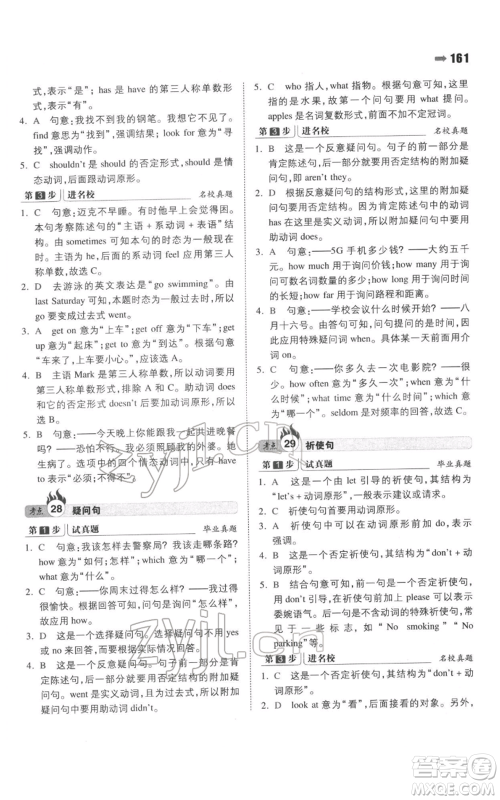 161
式，表示“是”；has 是 have 的第三人称单数形
式，表示“有”。
4. A 句意：我找不到我的钢笔。我找到了它。
find 意思是“找到”，强调结果；look for 意思是“寻
找”，强调动作。
5. C shouldn't 是 should 的否定形式，should 是情
态动词，后面跟动词原形。
第3步 进名校 名校真题
1. C 句意：迈克不早睡。有时他早上会觉得困。
本句考察陈述句中的“主语＋系动词＋表语”结
构。由 sometimes 可知本句的时态为一般现在
时，且主语为 he，故系动词 feel 应用第三人称单
数形式，故选 C。
2. D 去游泳的英文表达为“go swimming”。由
last Saturday 可知，本句的时态为一般过去时，故
go 变成了过去式 went。
3. A get on 意为“上车”；get off 意为“下车”；get
up 意为“起床”；get to 意为“到达”。根据句意
“车来了，上车小心”可知，应选 A。
4. B 主语 Mark 是第三人称单数形式，助动词应用
第三人称单数形式，排除 A 和 C。B 和 D 的区别
是：D 的否定形式 doesn't 后用动词原形，所以选
B。
5. B 句意：——今天晚上你能跟我们一起共进晚餐
吗？——恐怕不行。我得照顾我的外婆。must 和
have to 后面跟的都是情态动词的肯定形式，have
to 表示“必须；不得不”。
考点 28 疑问句
第1步 试真题 毕业真题
1. C 句意：我该怎样去警察局？你可以乘公共汽
车去，或者走那条路。how 意为“怎样”；which 意
为“哪一个”；what 意为“什么”。
2. C 句意：——你周末过得怎么样？——我们过得
很愉快。根据回答可知，问句是问“怎么样”，故
应用 how。
3. D 这是一个选择疑问句。选择疑问句不能用 yes
或 no 来回答，应根据实际情况回答。
4. B 这是一个反意疑问句。句子前一部分是肯定
陈述句，后一部分应用表示否定结构的附加疑问
句。went 是实义动词的过去式，变成否定结构时，
要用助动词 didn't。
5. C who 指人，what 指物。根据句意可知，这里
指的是水果，故第一个问句要用 what 提问。
apples 是名词复数形式，前面不加不定冠词。
第3步 进名校 名校真题
1. B 这是一个反意疑问句。句子的前一部分是
肯定陈述句，后一部分应用表示否定结构的附加
疑问句，即 aren't they。
2. D 这是一个反意疑问句。句子的前一部分为
肯定陈述句，后一部分应用否定结构的附加疑问
句。has 在本句中为实义动词，因此附加疑问句中
应用助动词 doesn't。
3. A 句意：——5G 手机多少钱？——大约五千
元。how much 用于询问价钱；how many 用于询
问可数名词数量；how long 用于询问时间或物体
的长短；how far 用于询问路程和距离。
4. B 句意：——学校会议什么时候举行？——八
月十六号。由答句可知，问句提问的应该是时间，
应用特殊疑问词 when 提问。具体某天用介词
on。
5. C 句意：——你多久去一次电影院？——很少。
how often 意为“多久一次”，表示频率；how 意为
“怎样”；what time 意为“什么时间”；which 意为
“哪一个”。seldom 是频率副词的回答。
考点 29 祈使句
第1步 试真题 毕业真题
1. A 这是一个由 let 引导的祈使句，其结构为
“let's＋动词原形”，表示建议。
2. C 祈使句句首要用动词原形。
3. D 祈使句的否定形式为在动词原形前加 don't，
表示禁止。
4. C 这是一个否定祈使句，其结构为“don't＋动
词原形”。
5. B 结合句意可知，这是一个否定祈使句，应用
don't 引导，也可在句首前加上 please 可以表示
委婉语气。后接名词或动名词的特殊祈使句，常
见于一些标志，如“No smoking”“No
parking”等。
第3步 进名校 名校真题
1. C 这是一个否定祈使句，其结构为“don't＋动
词原形”。
2. D look at 意为“看”，后面接看的对象。另外，
zyjl.cn
zyjl.cn